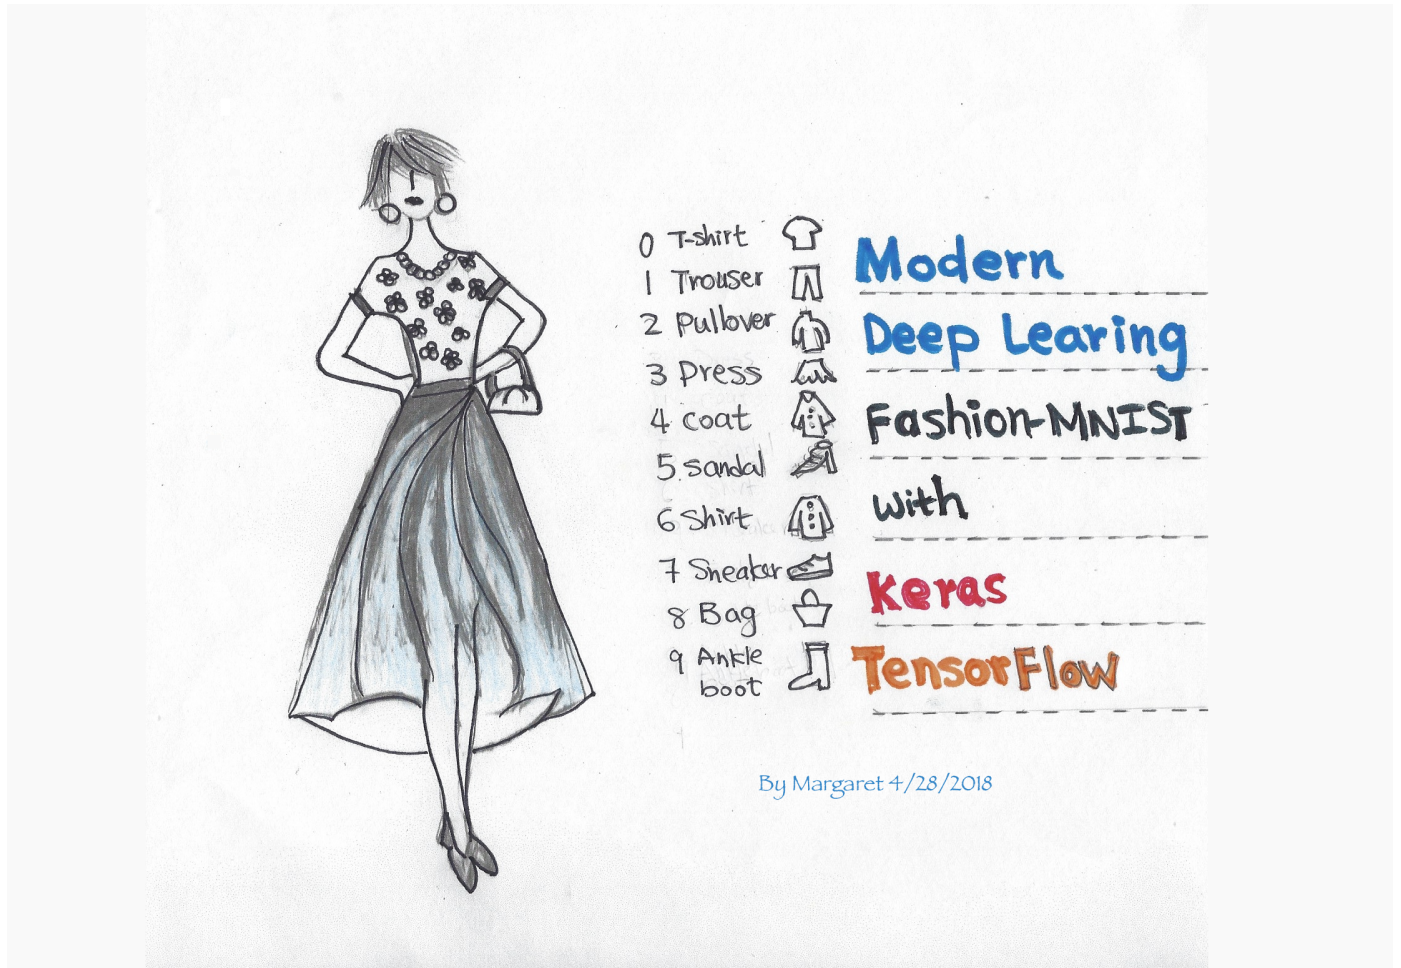 0 T-shirt
1 Trouser
2 Pullover
3 Dress
4 coat
5. sandal
6 Shirt
7 Sneaker
8 Bag
9 Ankle
boot
Modern
Deep Learing
Fashion-MNIST
with
Keras
TensorFlow
By Margaret 4/28/2018